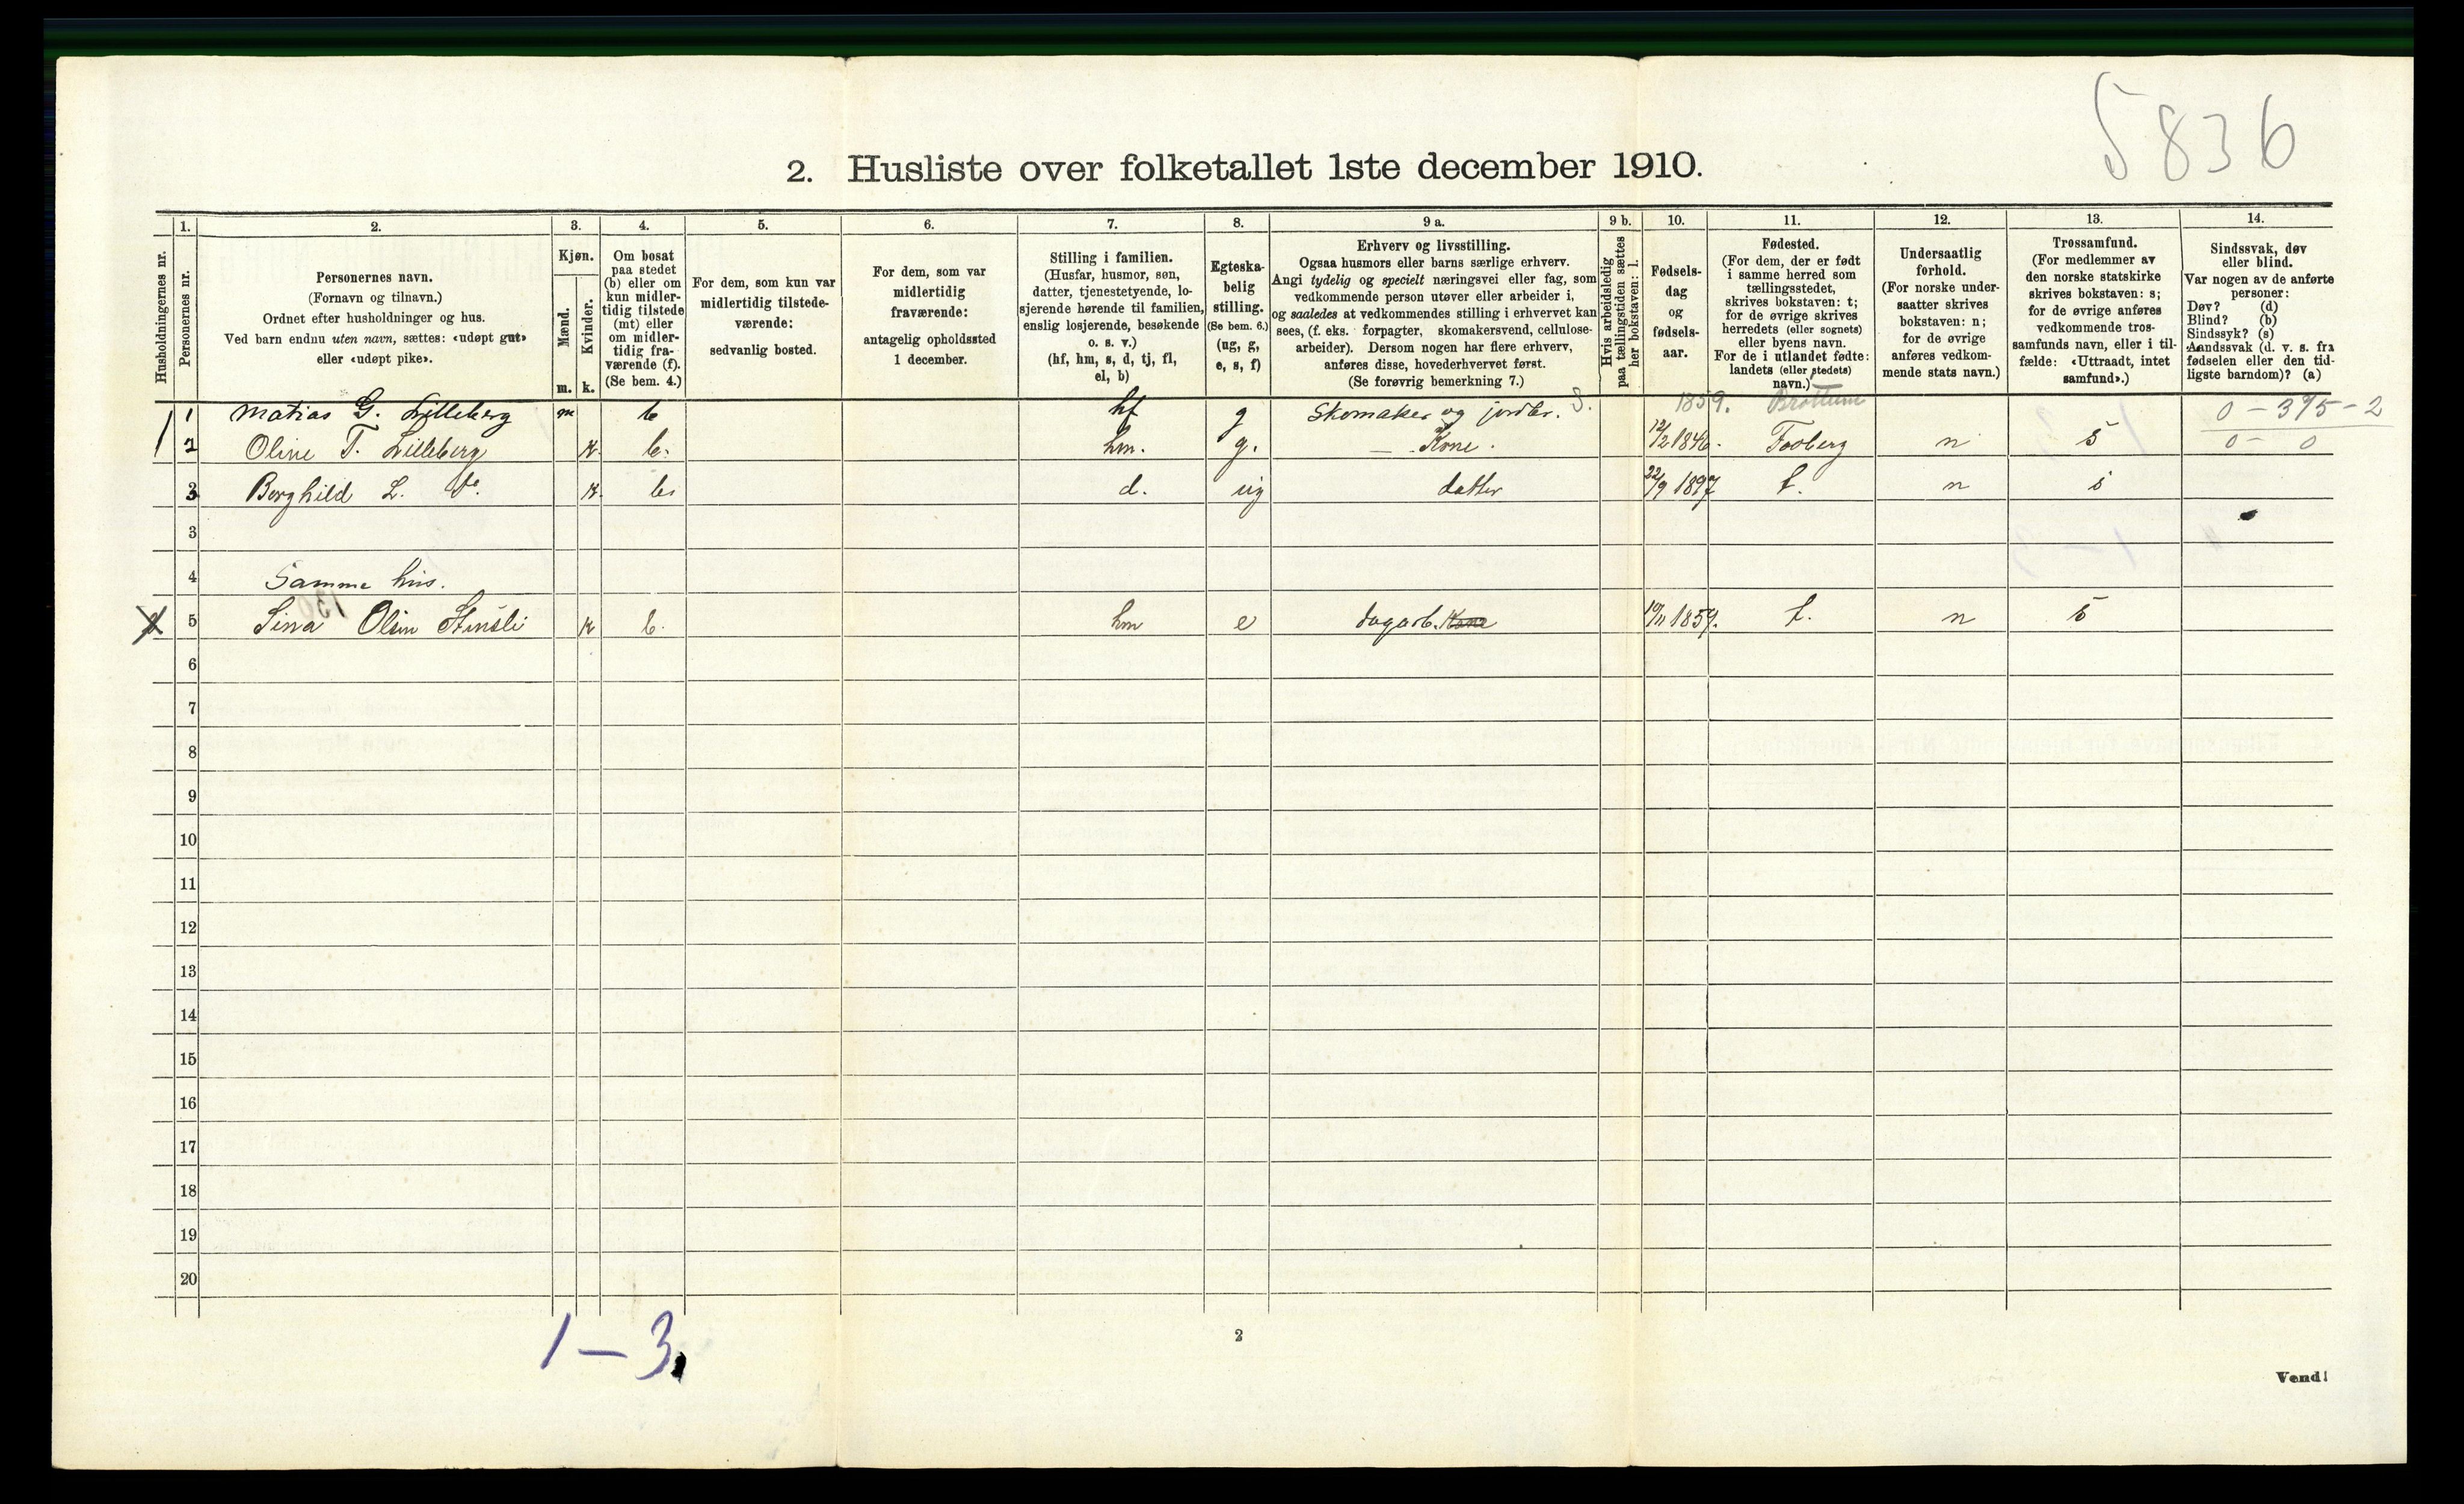 5836
2. Husliste over folketallet 1ste december 1910.
Husholdningernes nr.
1.
Personernes nr.
2.
Personernes navn.
(Fornavn og tilnavn.)
Ordnet efter husholdninger og hus.
Ved barn endnu uten navn, sættes: «udøpt gut»
eller «udøpt pike».
3.
Kjøn.
Mænd.
Kvinder.
m. k.
4.
Om bosat
paa stedet
(b) eller om
kun midler-
tidig tilstede
(mt) eller
om midler-
tidig fra-
værende (f).
(Se bem. 4.)
5.
For dem, som kun var
midlertidig tilstede-
værende:
sedvanlig bosted.
6.
For dem, som var
midlertidig
fraværende:
antagelig opholdssted
1 december.
7.
Stilling i familien.
(Husfar, husmor, søn,
datter, tjenestetyende, lo-
sjerende hørende til familien,
enslig losjerende, besøkende
o. s. v.)
(hf, hm, s, d, tj, fl,
el, b)
8.
Egteska-
belig
stilling.
(Se bem. 6.)
(ug, g,
e, s, f)
9 a.
Erhverv og livsstilling.
Ogsaa husmors eller barns særlige erhverv.
Angi tydelig og specielt næringsvei eller fag, som
vedkommende person utøver eller arbeider i,
og saaledes at vedkommendes stilling i erhvervet kan
sees, (f. eks. forpagter, skomakersvend, cellulose-
arbeider). Dersom nogen har flere erhverv,
anføres disse, hovederhvervet først.
(Se forøvrig bemerkning 7.)
9 b.
Hvis arbeidsledig
paa tællingstiden sættes
her bokstaven: l.
10.
Fødsels-
dag
og
fødsels-
aar.
11.
Fødested.
(For dem, der er født
i samme herred som
tællingsstedet,
skrives bokstaven: t;
for de øvrige skrives
herredets (eller sognets)
eller byens navn.
For de i utlandet fødte:
landets (eller stedets)
navn.)
12.
Undersaatlig
forhold.
(For norske under-
saatter skrives
bokstaven: n;
for de øvrige
anføres vedkom-
mende stats navn.)
13.
Trossamfund.
(For medlemmer av
den norske statskirke
skrives bokstaven: s;
for de øvrige anføres
vedkommende tros-
samfunds navn, eller i til-
fælde: «Uttraadt, intet
samfund».)
14.
Sindssvak, døv
eller blind.
Var nogen av de anførte
personer:
Døv? (d)
Blind? (b)
Sindssyk? (s)
Aandssvak (d. v. s. fra
fødselen eller den tid-
ligste barndom)? (a)
1 1 Matias G. Lilleberg m b hf g Skomaker og jordbr. S. 1859. Brøttum 0 - 375 - 2
2 Oline T. Lilleberg k b. hm. g. — Kone. 12/2 1846. Faaberg n s 0 - 0
3 Borghild L. do k. b d. ug datter 22/9 1897 t. n s
3
4 Samme hus.
5 Sina Olsen k b. hm e dagarb. Kone 1859. t. n s
6
7
8
9
10
11
12
13
14
15
16
17
18
19
20
1 — 3
2
Vend!